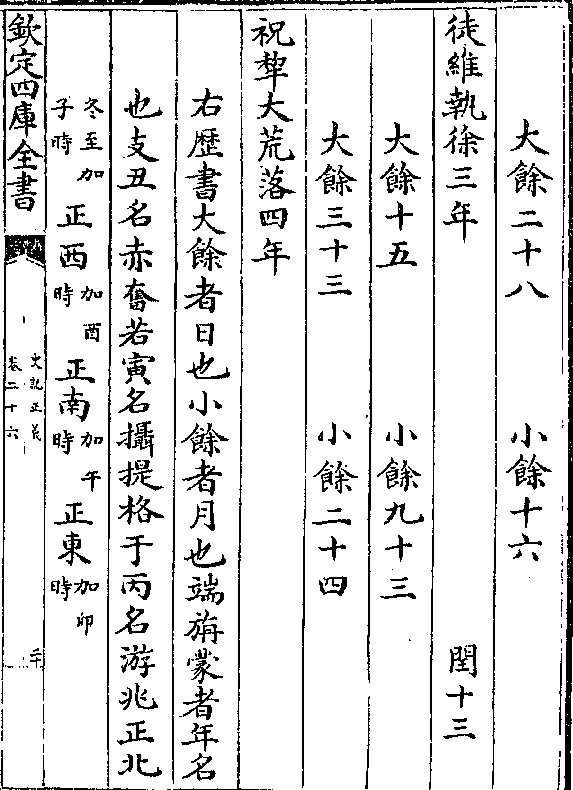 大餘二十八　小餘十六
徒維執徐三年　閏十三
大餘十五　小餘九十三
大餘三十三　小餘二十四
祝犂大荒落四年
右歴書大餘者日也小餘者月也端旃蒙者年名
也支丑名赤奮若寅名攝提格于丙名游兆正北
冬至加子時正西加酉時正南加午時正東加卯時
欽定四庫全書
史記正義
卷二十六
二十